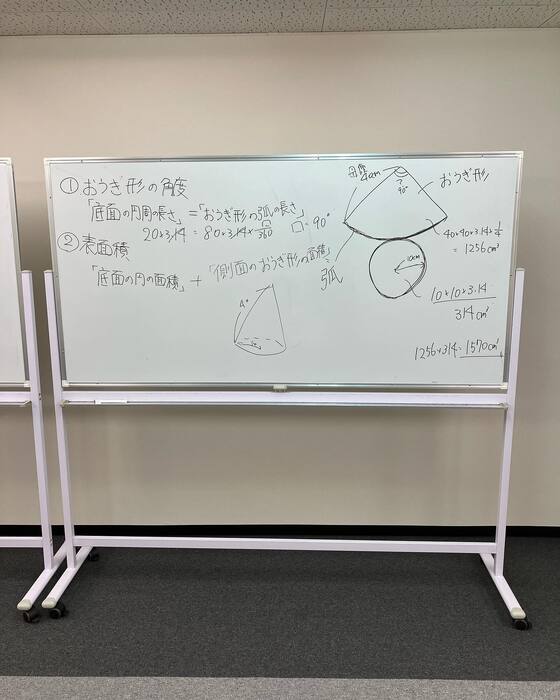 ① おうぎ形の角度
「底面の円周の長さ」=「おうぎ形の弧の長さ」
20×3.14 = 80×3.14×□/360 □=90°
② 表面積
「底面の円の面積」+「側面のおうぎ形の面積」
母線
?
90°
おうぎ形
40×40×3.14×1/4
= 1256cm²
弧
10cm
10×10×3.14
314cm²
1256+314=1570cm²